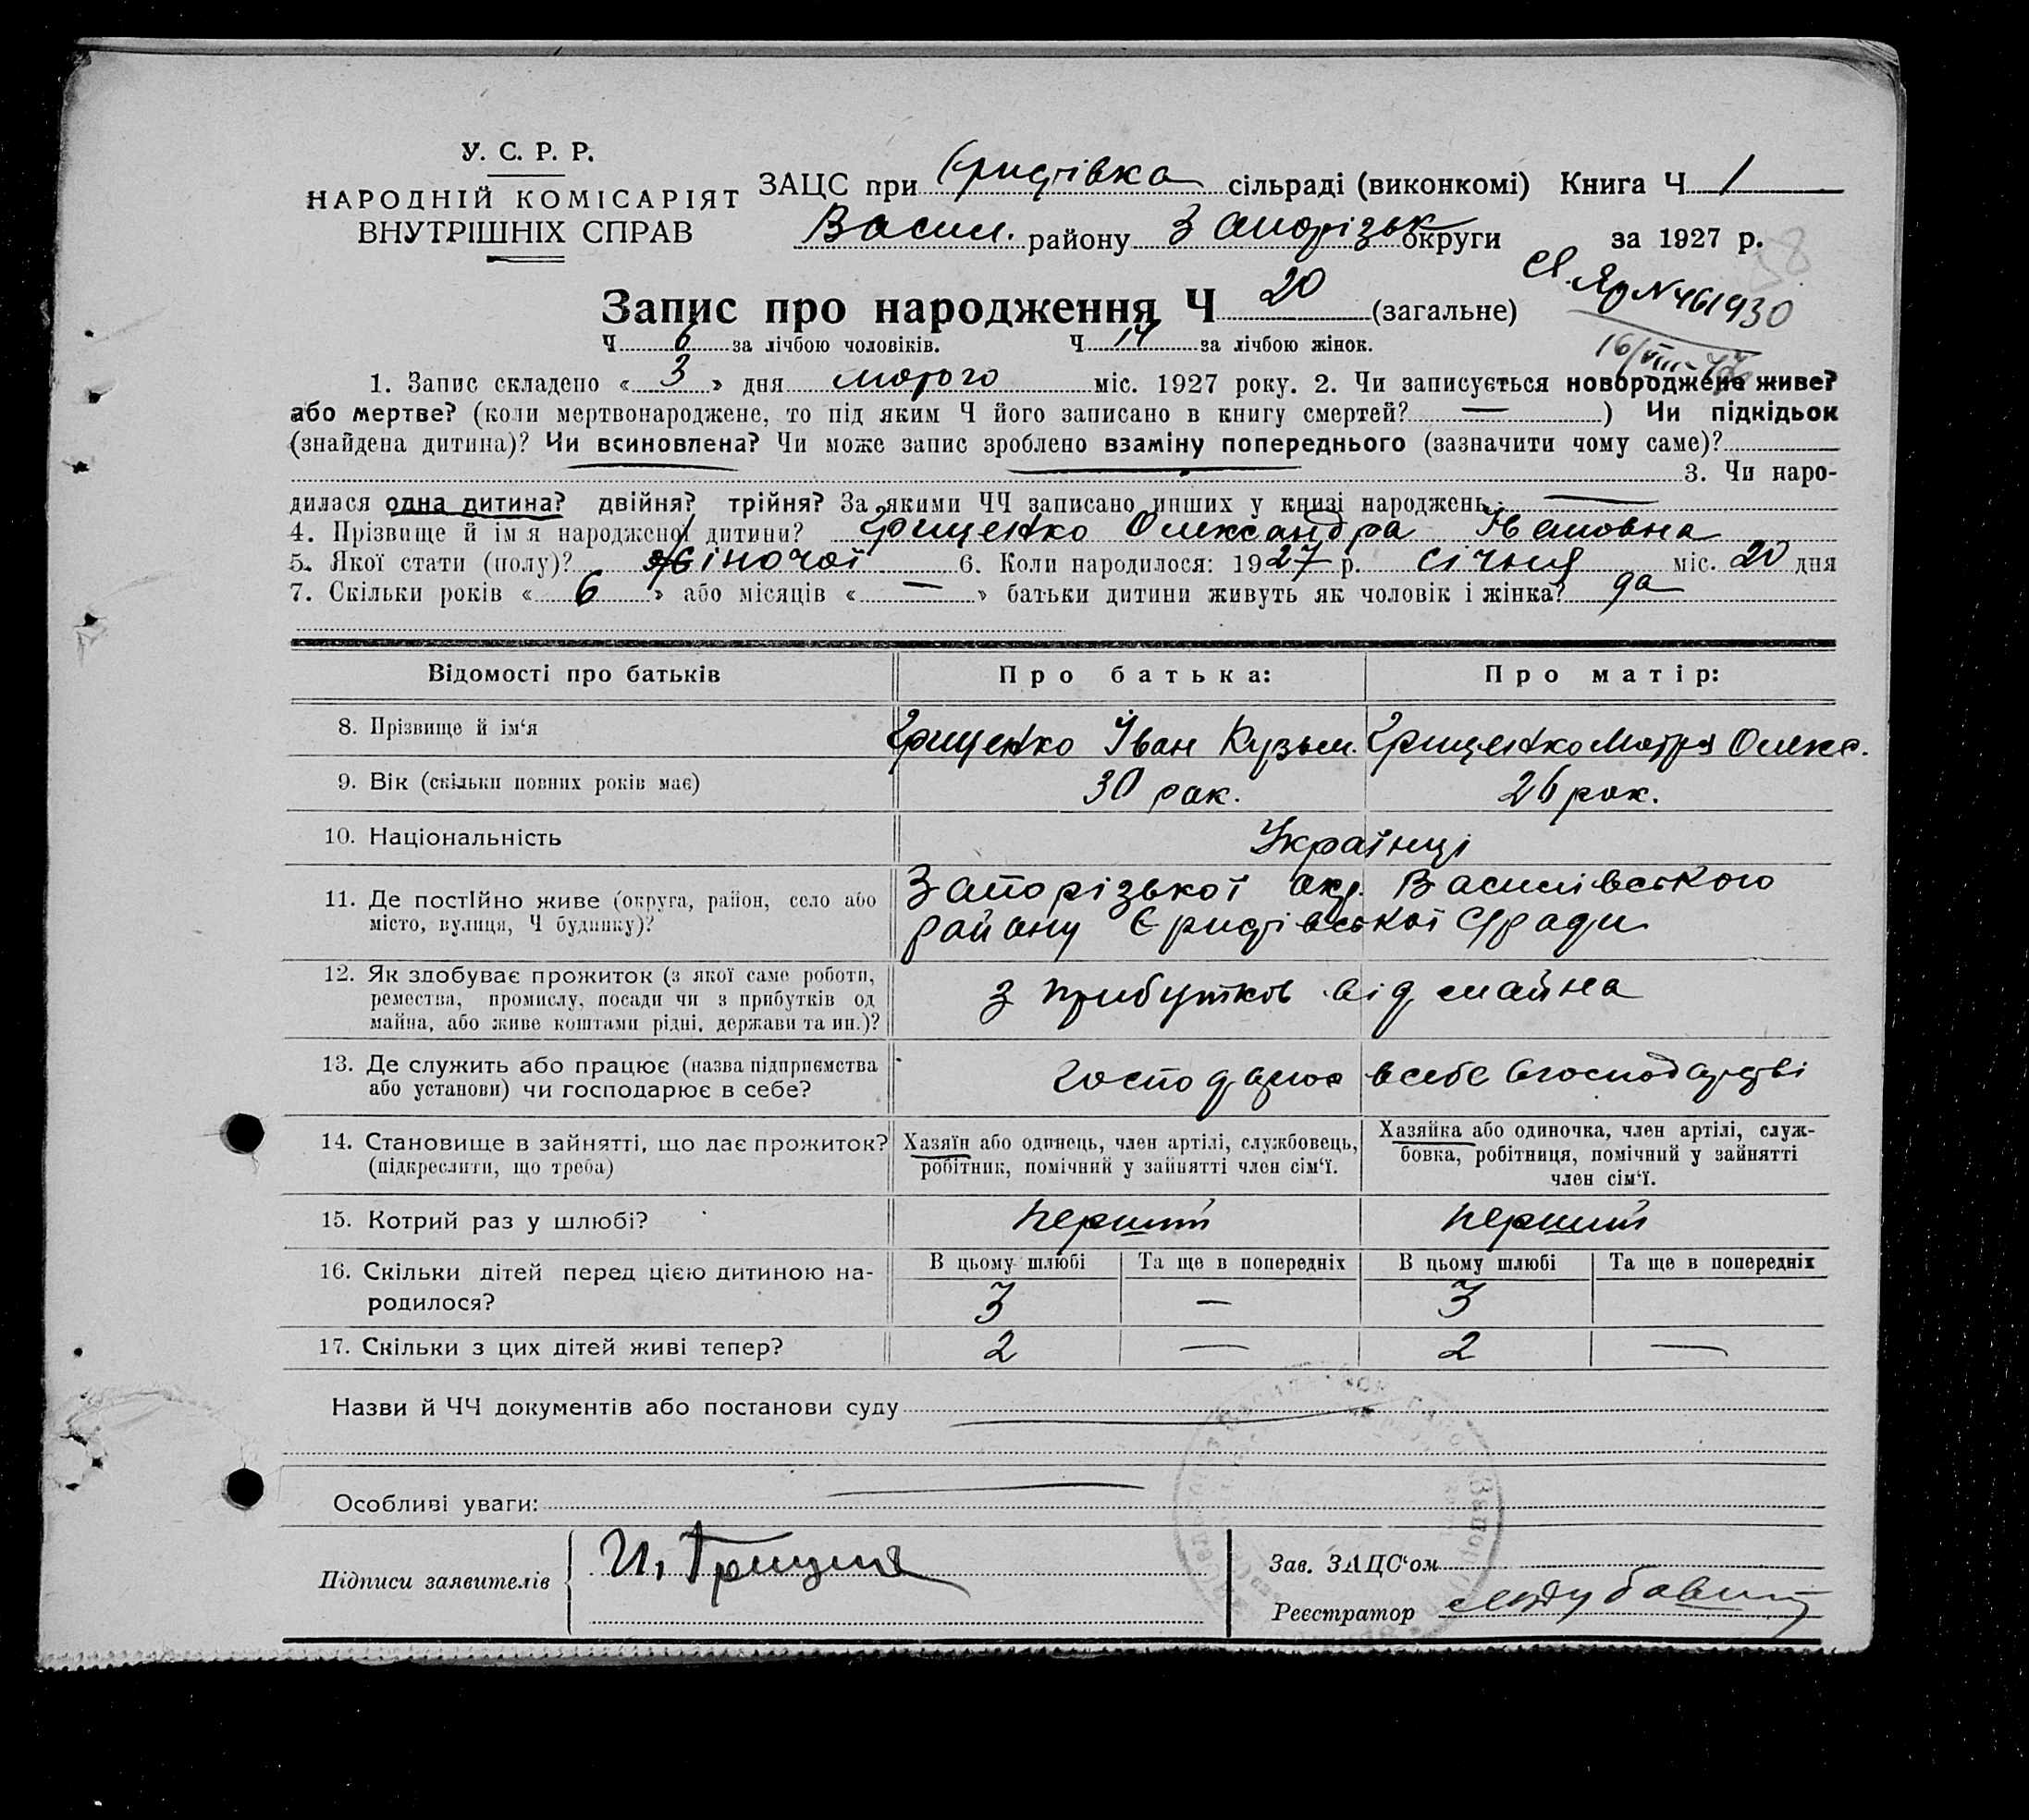 У. С. Р. Р.
НАРОДНІЙ КОМІСАРІЯТ
ВНУТРІШНІХ СПРАВ
ЗАЦС при Єристівка сільраді (виконкомі) Книга Ч 1
Васил. району Запорізьк округи за 1927 р.
Запис про народження Ч 20 (загальне)
№ 461930
Ч 6 за лічбою чоловіків. Ч 14 за лічбою жінок.
1. Запис складено « 3 » дня лютого міс. 1927 року. 2. Чи записується новороджене живе?
або мертве? (коли мертвонароджене, то під яким Ч його записано в книгу смертей? — ) Чи підкідьок
(знайдена дитина)? Чи всиновлена? Чи може запис зроблено взаміну попереднього (зазначити чому саме)?
3. Чи наро-
дилася одна дитина? двійня? трійня? За якими ЧЧ записано инших у книзі народжень: —
4. Прізвище й ім'я народженої дитини? Грищенко Олександра Івановна
5. Якої стати (полу)? жіночої 6. Коли народилося: 1927 р. січня міс. 20 дня
7. Скільки років « 6 » або місяців « — » батьки дитини живуть як чоловік і жінка? да
Відомості про батьків Про батька: Про матір:
8. Прізвище й ім'я Грищенко Іван Кузьм. Грищенко Мотря Олекс.
9. Вік (скільки повних років має) 30 рок. 26 рок.
10. Національність Українці
11. Де постійно живе (округа, район, село або
місто, вулиця, Ч будинку)?
Запорізької окр. Василівського
району Єристівської с/ради
12. Як здобуває прожиток (з якої саме роботи,
ремества, промислу, посади чи з прибутків од
майна, або живе коштами рідні, держави та ин.)?
з прибутков від майна
13. Де служить або працює (назва підприємства
або установи) чи господарює в себе?
господарює в себе в господарстві
14. Становище в зайнятті, що дає прожиток?
(підкреслити, що треба)
Хазяїн або одинець, член артілі, службовець,
робітник, помічний у зайнятті член сім'ї.
Хазяйка або одиночка, член артілі, служ-
бовка, робітниця, помічний у зайнятті
член сім'ї.
15. Котрий раз у шлюбі? перший перший
16. Скільки дітей перед цією дитиною на-
родилося?
В цьому шлюбі Та ще в попередніх В цьому шлюбі Та ще в попередніх
3 — 3
17. Скільки з цих дітей живі тепер? 2 — 2 —
Назви й ЧЧ документів або постанови суду
Особливі уваги:
Підписи заявителів И. Грищен
Зав. ЗАЦС'ом
Реєстратор